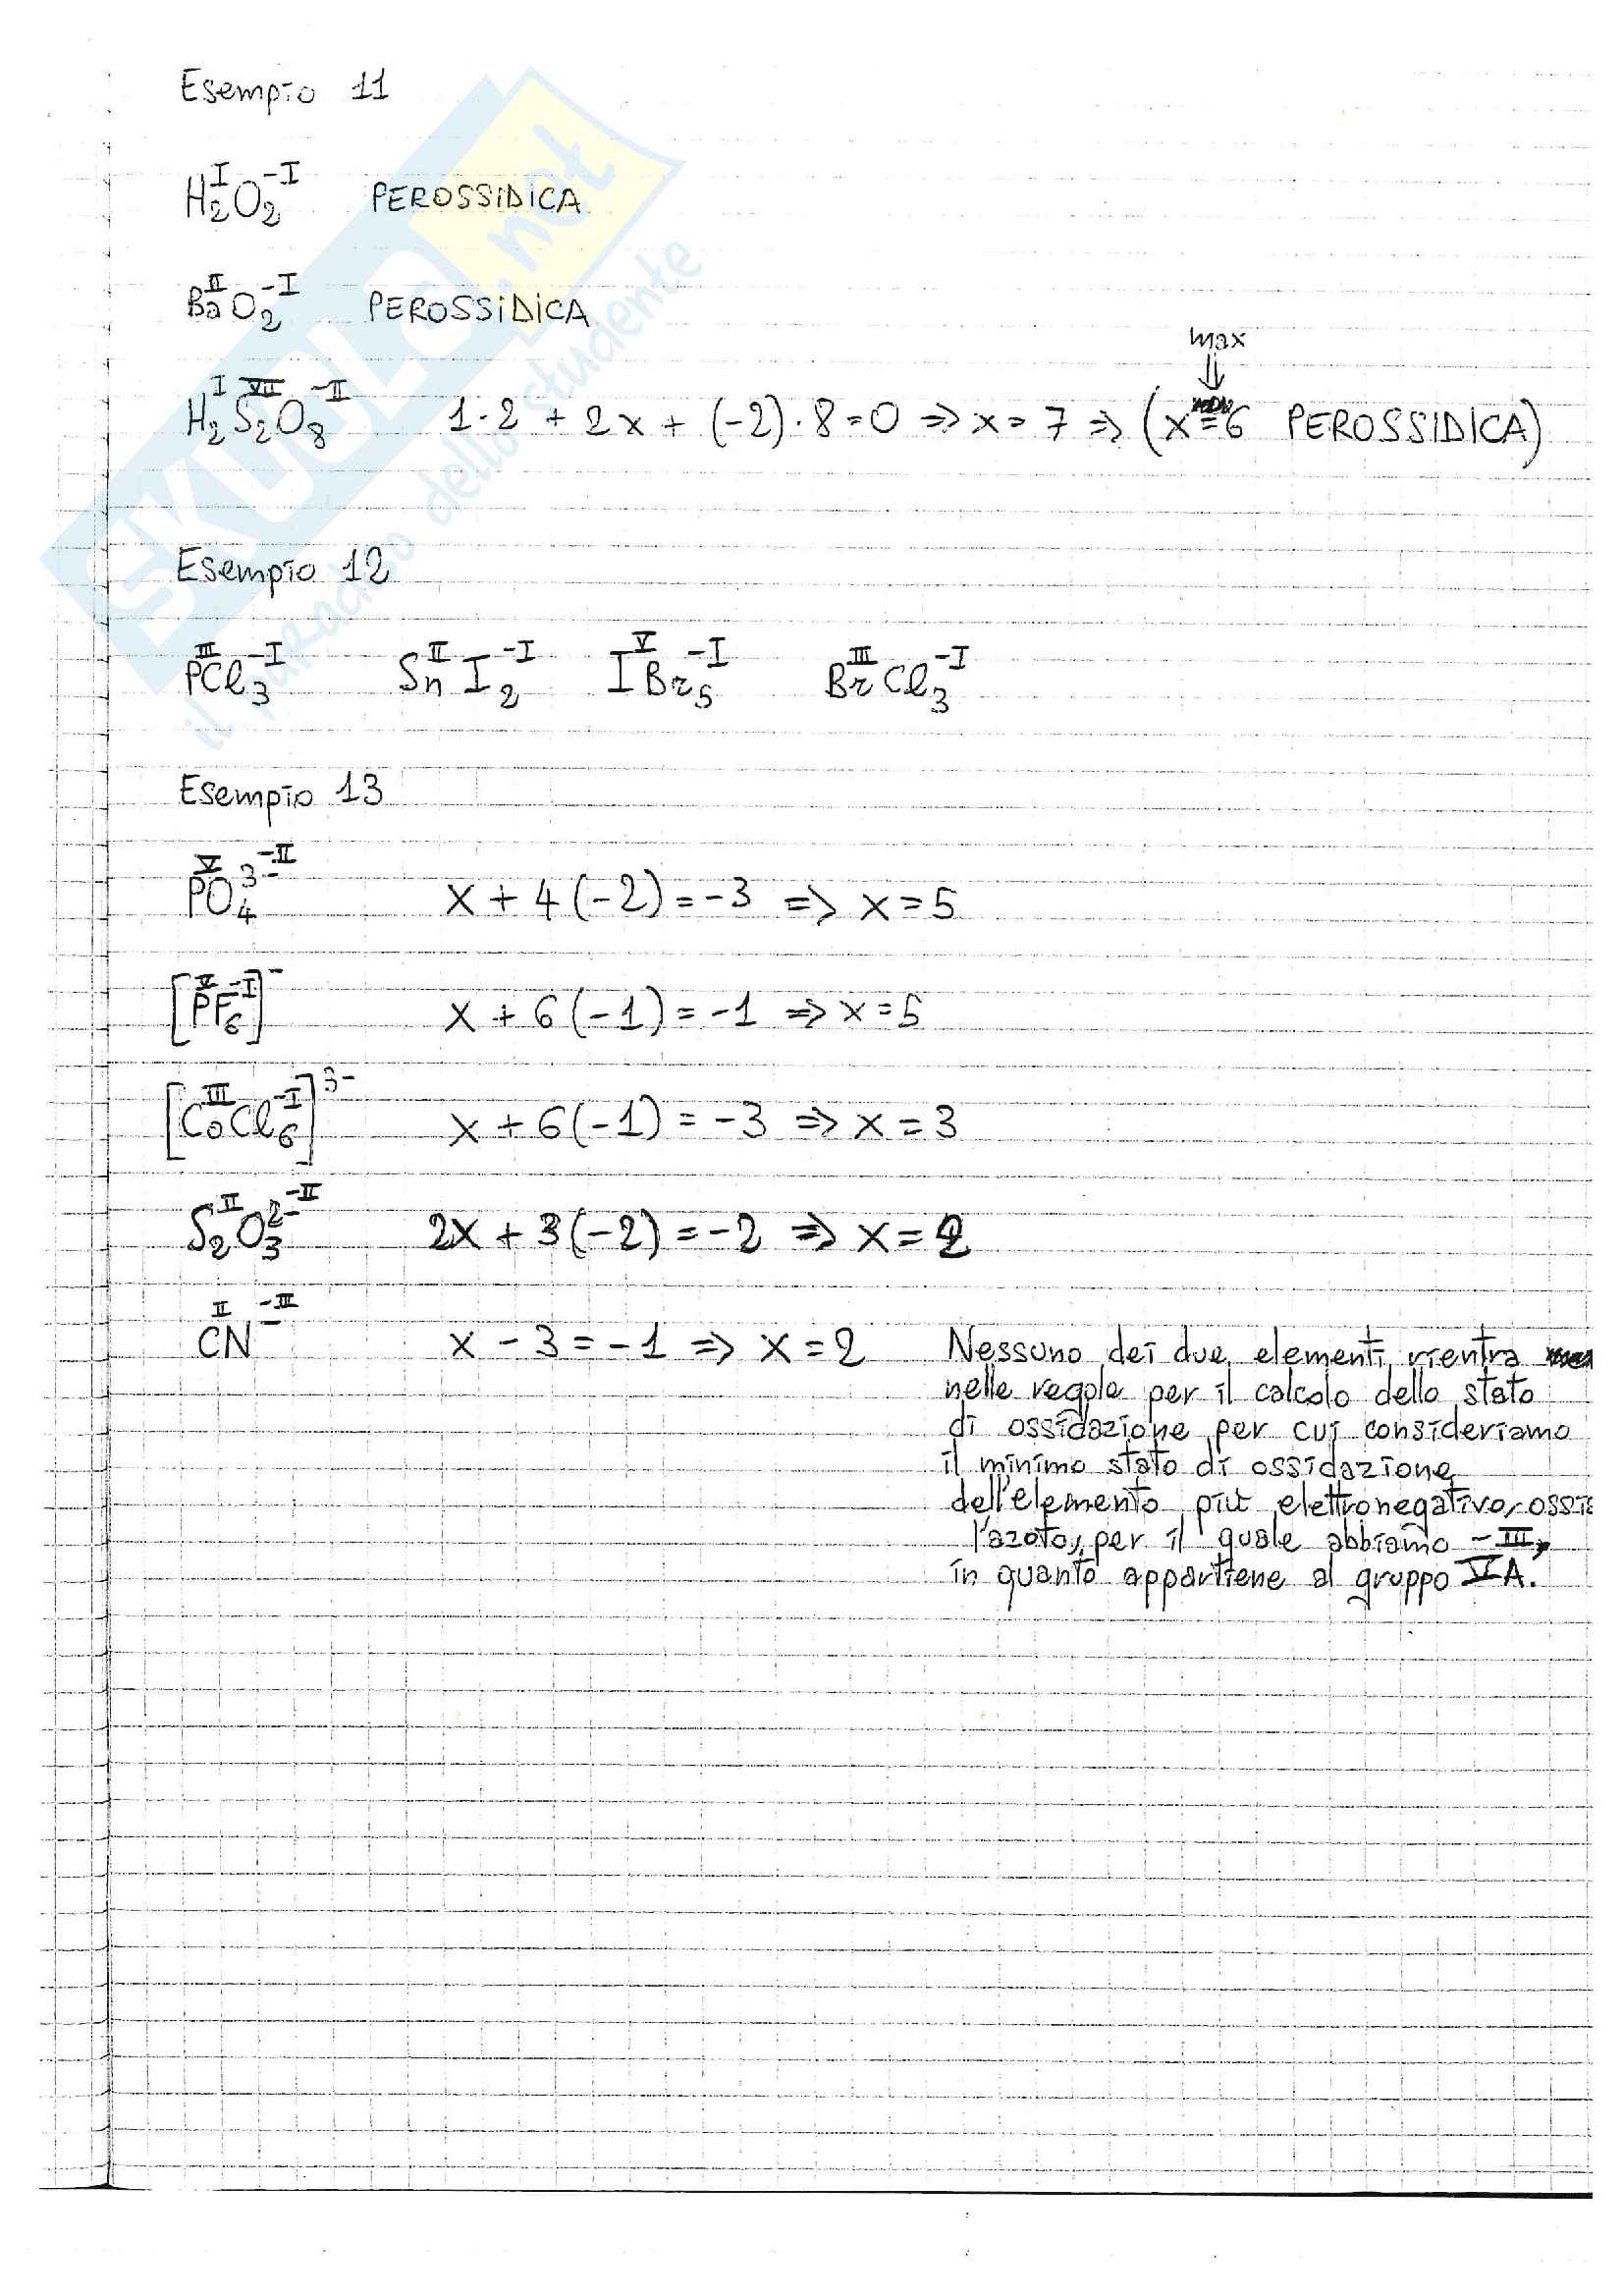 Esempio 11
H₂^I O₂^-I PEROSSIDICA
Ba^II O₂^-I PEROSSIDICA
max
⇓
H₂^I S₂^VII O₈^-II 1·2 + 2x + (-2)·8=0 => x=7 => (x=6 PEROSSIDICA)
Esempio 12
P^III Cl₃^-I Sn^II I₂^-I I^V Br₅^-I Br^III Cl₃^-I
Esempio 13
P^V O₄^3- ^-II x + 4(-2) = -3 => x = 5
[P^V F₆^-I]^- x + 6(-1) = -1 => x = 5
[Co^III Cl₆^-I]^3- x + 6(-1) = -3 => x = 3
S₂^II O₃^2- ^-II 2x + 3(-2) = -2 => x = 2
C^II N^- ^-III x - 3 = -1 => x = 2 Nessuno dei due elementi rientra
nelle regole per il calcolo dello stato
di ossidazione per cui consideriamo
il minimo stato di ossidazione
dell'elemento più elettronegativo, ossia
l'azoto, per il quale abbiamo -III,
in quanto appartiene al gruppo VA.
SKUOLA.net
il paradiso dello studente